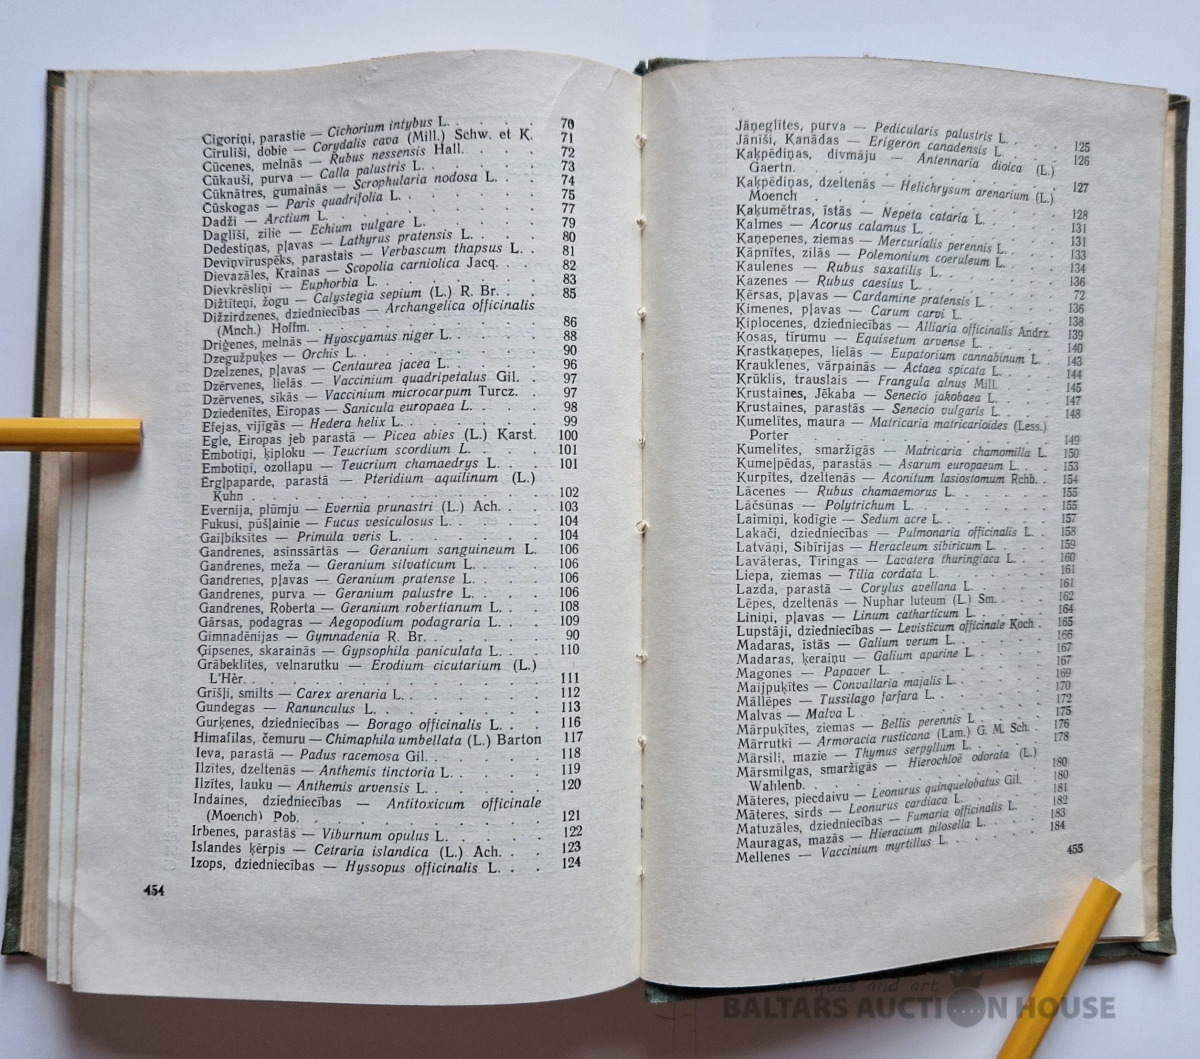 Cigoriņi, parastie — Cichorium intybus L. . . . . 70
Cīrulīši, dobie — Corydalis cava (Mill.) Schw. et K. 71
Cūcenes, melnās — Rubus nessensis Hall. . . . . 72
Cūkauši, purva — Calla palustris L. . . . . 73
Cūknātres, gumainās — Scrophularia nodosa L. . . . 74
Čūskogas — Paris quadrifolia L. . . . . 75
Dadži — Arctium L. . . . . 77
Daglīši, zilie — Echium vulgare L. . . . . 79
Dedestiņas, pļavas — Lathyrus pratensis L. . . . 80
Deviņvīruspēks, parastais — Verbascum thapsus L. . . 81
Dievazāles, Krainas — Scopolia carniolica Jacq. . . . 82
Dievkrēsliņi — Euphorbia L. . . . . 83
Dižtīteņi, žogu — Calystegia sepium (L.) R. Br. . . . 85
Dižzirdzenes, dziedniecības — Archangelica officinalis
(Mnch.) Hoffm. . . . . 86
Driģenes, melnās — Hyoscyamus niger L. . . . . 88
Dzegužpuķes — Orchis L. . . . . 90
Dzelzenes, pļavas — Centaurea jacea L. . . . . 96
Dzērvenes, lielās — Vaccinium quadripetalus Gil. . . 97
Dzērvenes, sīkās — Vaccinium microcarpum Turcz. . . 97
Dziedenītes, Eiropas — Sanicula europaea L. . . . 98
Efejas, vijīgās — Hedera helix L. . . . . 99
Egle, Eiropas jeb parastā — Picea abies (L.) Karst. 100
Embotiņi, ķiploku — Teucrium scordium L. . . . 101
Embotiņi, ozollapu — Teucrium chamaedrys L. . . 101
Ērgļpaparde, parastā — Pteridium aquilinum (L.)
Kuhn . . . . 102
Evernija, plūmju — Evernia prunastri (L.) Ach. . . . 103
Fukusi, pūšļainie — Fucus vesiculosus L. . . . . 104
Gaiļbiksītes — Primula veris L. . . . . 104
Gandrenes, asinssārtās — Geranium sanguineum L. 106
Gandrenes, meža — Geranium silvaticum L. . . . 106
Gandrenes, pļavas — Geranium pratense L. . . . 106
Gandrenes, purva — Geranium palustre L. . . . 106
Gandrenes, Roberta — Geranium robertianum L. . . 108
Gārsas, podagras — Aegopodium podagraria L. . . . 109
Gimnadēnijas — Gymnadenia R. Br. . . . . 90
Ģipsenes, skarainās — Gypsophila paniculata L. . . . 110
Grābeklītes, velnarutku — Erodium cicutarium (L.)
L'Hèr. . . . . 111
Grīšļi, smilts — Carex arenaria L. . . . . 112
Gundegas — Ranunculus L. . . . . 113
Gurķenes, dziedniecības — Borago officinalis L. . . 116
Himafilas, čemuru — Chimaphila umbellata (L.) Barton 117
Ieva, parastā — Padus racemosa Gil. . . . . 118
Ilzītes, dzeltenās — Anthemis tinctoria L. . . . . 119
Ilzītes, lauku — Anthemis arvensis L. . . . . 120
Indaines, dziedniecības — Antitoxicum officinale
(Moench) Pob. . . . . 121
Irbenes, parastās — Viburnum opulus L. . . . . 122
Islandes ķērpis — Cetraria islandica (L.) Ach. . . 123
Izops, dziedniecības — Hyssopus officinalis L. . . . 124
454
Jāņeglītes, purva — Pedicularis palustris L. . . . 125
Jānīši, Kanādas — Erigeron canadensis L. . . . 126
Kaķpēdiņas, divmāju — Antennaria dioica (L.)
Gaertn. . . . . 127
Kaķpēdiņas, dzeltenās — Helichrysum arenarium (L.)
Moench . . . . 128
Kaķumētras, īstās — Nepeta cataria L. . . . . 131
Kalmes — Acorus calamus L. . . . . 131
Kaņepenes, ziemas — Mercurialis perennis L. . . . 133
Kāpnītes, zilās — Polemonium coeruleum L. . . . 134
Kaulenes — Rubus saxatilis L. . . . . 136
Kazenes — Rubus caesius L. . . . . 72
Ķērsas, pļavas — Cardamine pratensis L. . . . . 136
Ķimenes, pļavas — Carum carvi L. . . . . 138
Ķiplocenes, dziedniecības — Alliaria officinalis Andrz. 139
Kosas, tīrumu — Equisetum arvense L. . . . . 140
Krastkaņepes, lielās — Eupatorium cannabinum L. . 143
Krauklenes, vārpainās — Actaea spicata L. . . . 144
Krūklis, trauslais — Frangula alnus Mill. . . . 145
Krustaines, Jēkaba — Senecio jakobaea L. . . . 147
Krustaines, parastās — Senecio vulgaris L. . . . 148
Kumelītes, maura — Matricaria matricarioides (Less.)
Porter . . . . 149
Kumelītes, smaržīgās — Matricaria chamomilla L. 150
Kumeļpēdas, parastās — Asarum europaeum L. . . 153
Kurpītes, dzeltenās — Aconitum lasiostomum Rchb. . 154
Lācenes — Rubus chamaemorus L. . . . . 155
Lāčsūnas — Polytrichum L. . . . . 155
Laimiņi, kodīgie — Sedum acre L. . . . . 157
Lakači, dziedniecības — Pulmonaria officinalis L. . . 158
Latvāņi, Sibīrijas — Heracleum sibiricum L. . . . 159
Lavāteras, Tīringas — Lavatera thuringiaca L. . . . 160
Liepa, ziemas — Tilia cordata L. . . . . 161
Lazda, parastā — Corylus avellana L. . . . . 161
Lēpes, dzeltenās — Nuphar luteum (L.) Sm. . . . 162
Liniņi, pļavas — Linum catharticum L. . . . . 164
Lupstāji, dziedniecības — Levisticum officinale Koch . 165
Madaras, īstās — Galium verum L. . . . . 166
Madaras, ķeraiņu — Galium aparine L. . . . . 167
Magones — Papaver L. . . . . 167
Maijpuķītes — Convallaria majalis L. . . . . 169
Māllēpes — Tussilago farfara L. . . . . 170
Malvas — Malva L . . . . 172
Mārpuķītes, ziemas — Bellis perennis L . . . . 175
Mārrutki — Armoracia rusticana (Lam.) G. M. Sch. . 176
Mārsili, mazie — Thymus serpyllum L. . . . . 178
Mārsmilgas, smaržīgās — Hierochloë odorata (L.)
Wahlenb. . . . . 180
Māteres, piecdaivu — Leonurus quinquelobatus Gil. 180
Māteres, sirds — Leonurus cardiaca L. . . . . 181
Matuzāles, dziedniecības — Fumaria officinalis L. . . 182
Mauragas, mazās — Hieracium pilosella L. . . . 183
Mellenes — Vaccinium myrtillus L. . . . . 184
455
antiques and art
BALTARS AUCTION HOUSE